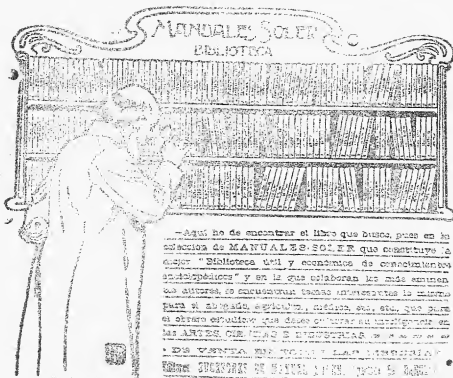 MANUALES SOLER
BIBLIOTECA
—Aquí he de encontrar el libro que busco, pues en la
colección de MANUALES-SOLER que constituye la
mejor "Biblioteca útil y económica de conocimientos
enciclopédicos" y en la que colaboran los más eminen-
tes autores, se encuentran temas interesantes lo mismo
para el abogado, agricultor, médico, etc., etc., que para
el obrero estudioso que desee cultivar su inteligencia en
las ARTES, CIENCIAS E INDUSTRIAS
DE VENTA EN TODAS LAS LIBRERIAS
SUCESORES DE MANUEL SOLER